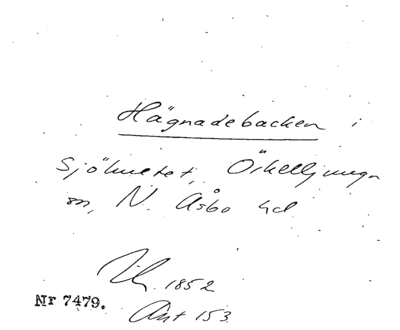 Hägnadebacken i
Sjöhultet, Örkelljunga
sn, N. Åsbo hd
1852
Nr 7479.
Ant 153